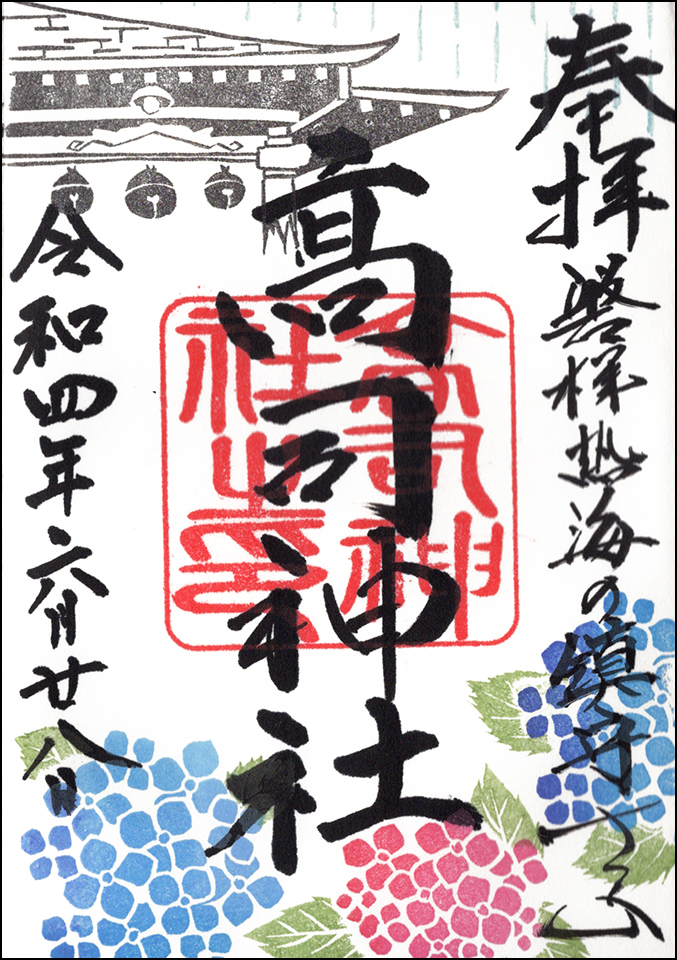 奉拝
磐梯熱海の鎮守さま
高司神社
高司神社之印
令和四年六月廿八日